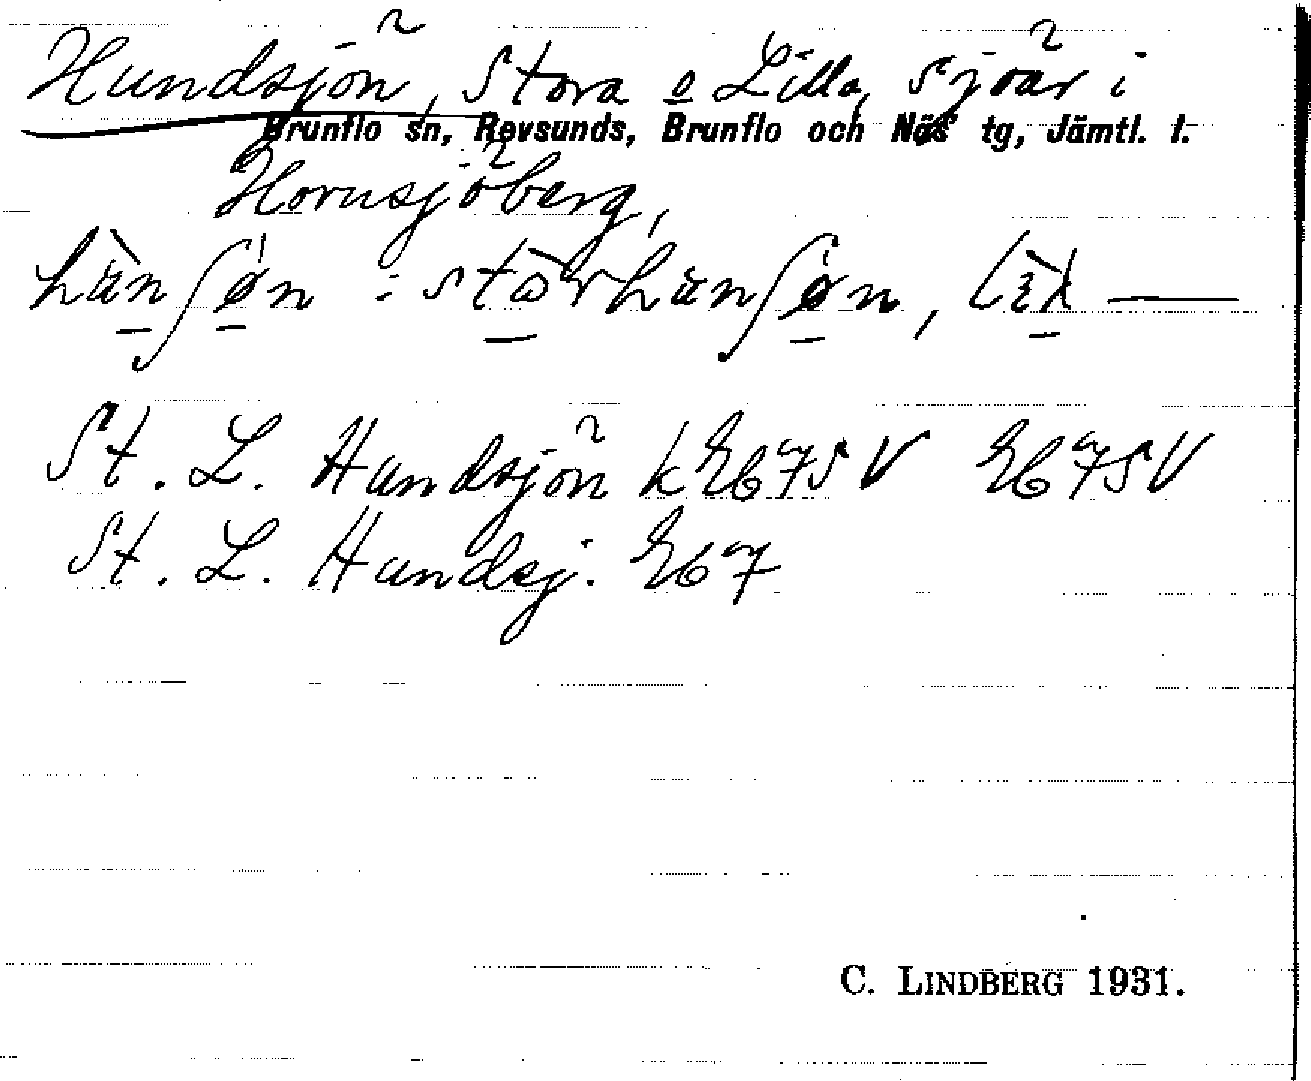 Hundsjön, Stora o Lilla, sjöar i
Brunflo sn, Revsunds, Brunflo och Näs tg, Jämtl. l.
Hornsjöberg,
St. L. Hundsjön k Eb 75 V Eb 75 V
St. L. Hundsj. Eb 7
C. LINDBERG 1931.